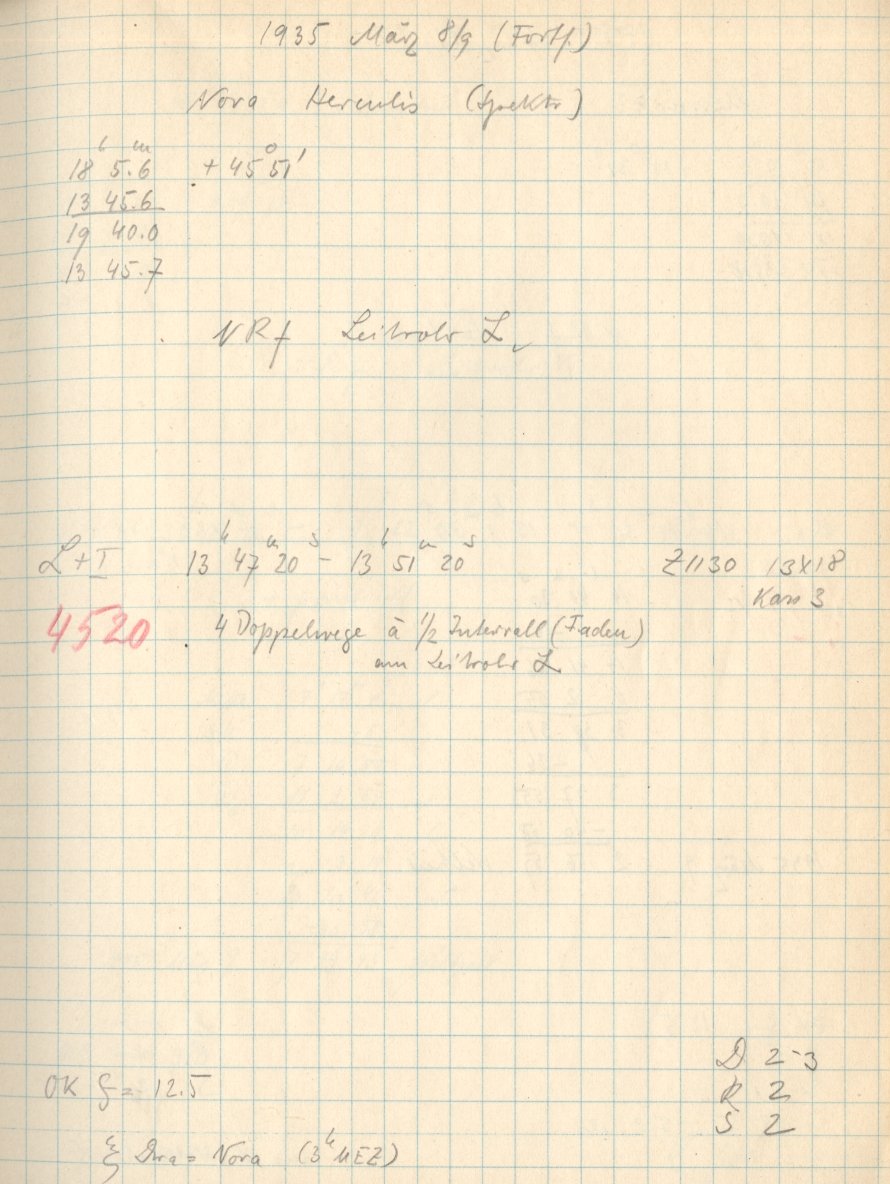 1935 März 8/9 (Fortf.)
Nova Herculis (Spektr)
18ʰ 5.6ᵐ +45°51'
13 45.6
19 40.0
13 45.7
NRf Leitrohr L
L+I 13ʰ 47ᵐ 20ˢ - 13ʰ 51ᵐ 20ˢ Z1130 13x18
Kass 3
4520 4 Doppelwege à 1/2 Intervall (Faden)
am Leitrohr L
D 2-3
OK f = 12.5 R 2
S 2
ξ Dra = Nova (3ʰ MEZ)